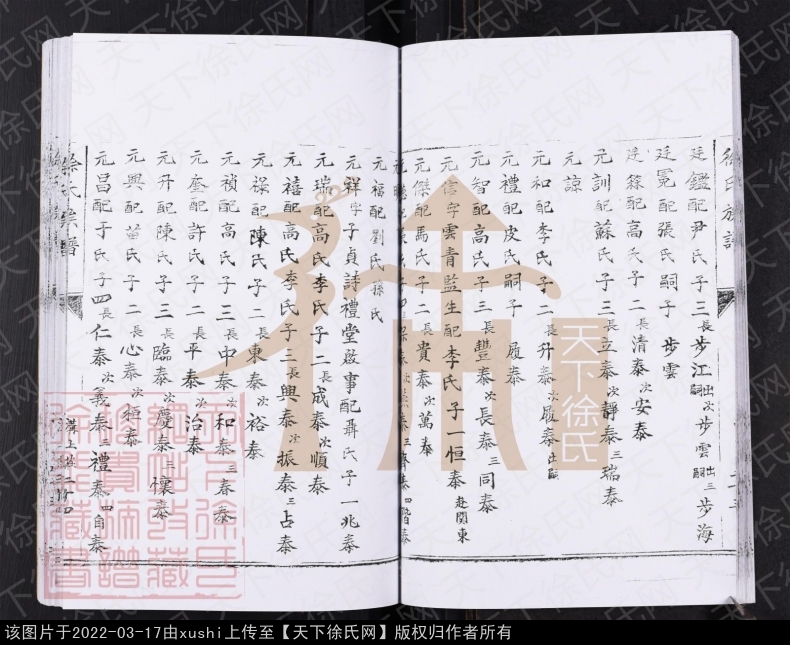 徐氏族譜
廷鑑配尹氏子三長步江出嗣次步雲出嗣三步海
廷冕配張氏嗣子步雲
廷籙配高氏子二長清泰次安泰
元訓配蘇氏子三長立泰次靜泰三瑞泰
元諒
元和配李氏子二長升泰次履泰出嗣
元禮配皮氏嗣子履泰
元智配高氏子三長豐泰次長泰三同泰
元信字雲青監生配李氏子一恒泰赴関東
元傑配馬氏子二長貴泰次萬泰
元福配劉氏孫氏
元祥字子貞詩禮堂啟事配聶氏子一兆泰
元瑞配高氏李氏子二長成泰次順泰
元禧配高氏李氏子三長興泰次振泰三占泰
元祿配陳氏子二長東泰次裕泰
元禎配高氏子三長中泰次和泰三春泰
元奎配許氏子二長平泰次治泰
元升配陳氏子三長臨泰次慶泰三懷泰
元興配苗氏子二長心泰次桓泰
元昌配于氏子四長仁泰次義泰三禮泰四自泰
徐氏族譜
天下徐氏
天下徐氏网
该图片于2022-03-17由xushi上传至【天下徐氏网】版权归作者所有